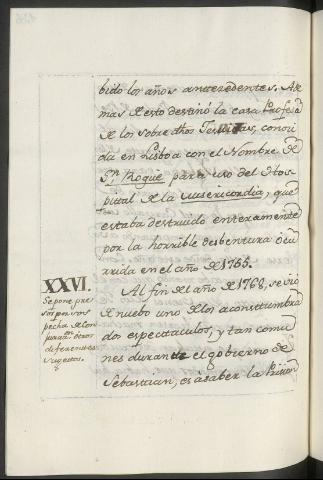 bido los años antecedentes. Ade
mas de esto destinó la casa Profesa
de los sobre dhos Jesuitas, conoci
da en Lisboa con el Nombre de
Sn. Roque para uso del Hos
pital de la Misericordia, que
estaba destruido enteramente
por la horrible desbentura ocu
rrida en el año de 1765.
XXVI.
Se pone pre
sos por sos
pecha de con
juraon. otros
diferentes
sugettos.
Al fin del año de 1768, se vió
de nuebo uno de los acosttumbra
dos especttaculos, y tan comu
nes durante el gobierno de
Sebastian, es á saber la Prision